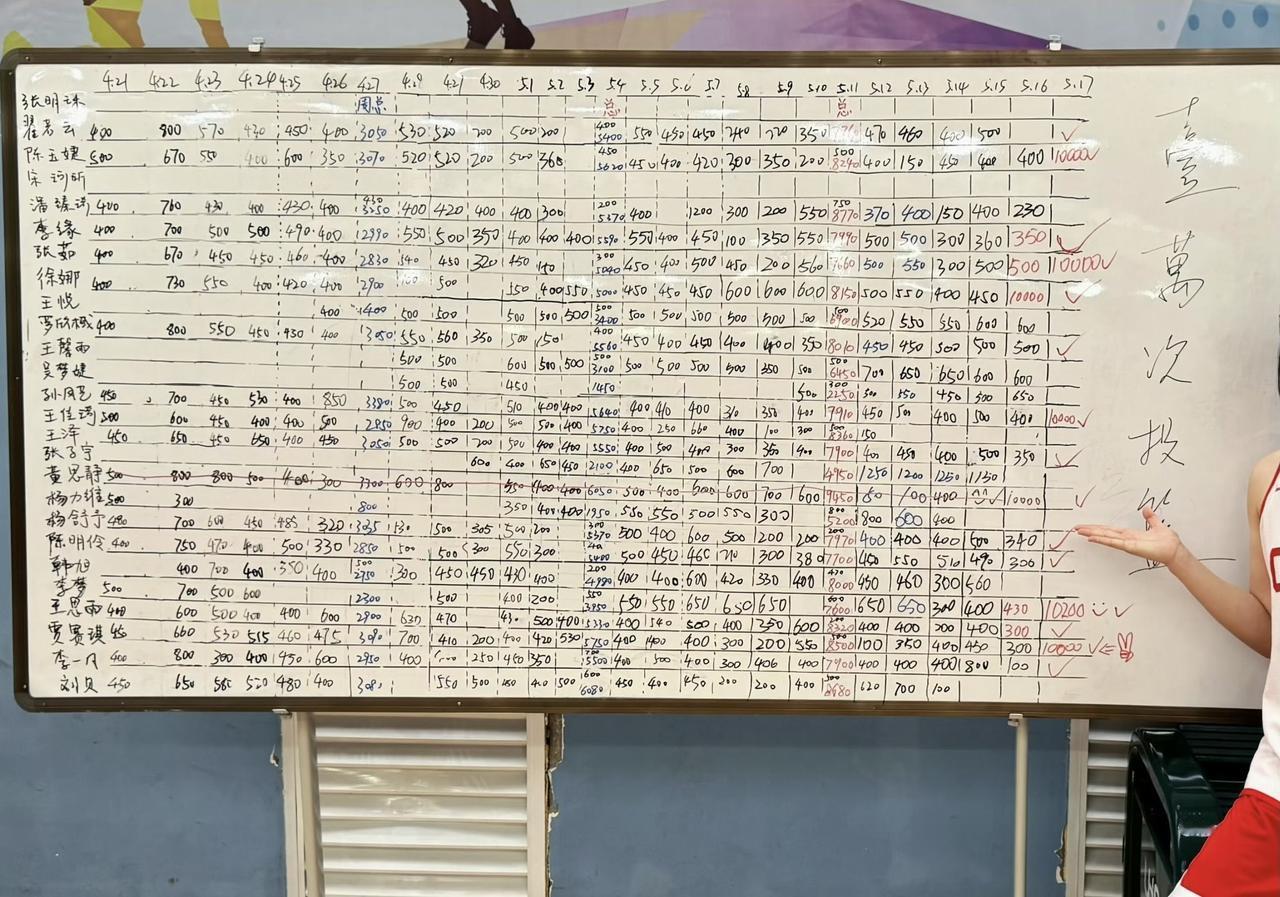 4.21 4.22 4.23 4.24 4.25 4.26 4.27 4.28 4.29 4.30 5.1 5.2 5.3 5.4 5.5 5.6 5.7 5.8 5.9 5.10 5.11 5.12 5.13 5.14 5.15 5.16 5.17
张明珠 周总 总 总
翟若云 400 800 570 430 450 400 3050 530 520 200 500 200 400 3400 550 450 450 200 350 470 460 400 500 ✓
陈玉婕 500 670 550 400 600 350 3070 520 520 200 500 360 450 5620 450 400 420 300 350 200 500 8240 400 150 450 400 400 10000✓
宋珂昕
潘臻琦 400 760 430 400 430 400 3250 400 420 400 400 300 200 5370 400 1200 300 200 550 750 8770 370 400 150 400 230
李缘 400 700 500 500 490 400 2990 550 500 350 400 400 400 5590 550 400 450 100 350 550 7990 500 500 300 360 350 ✓
张茹 400 670 450 450 460 400 2830 540 450 320 450 150 300 5040 450 400 500 450 200 560 7660 500 550 300 500 500 10000✓
徐娜 400 730 550 400 420 400 2900 100 500 350 400 550 5000 450 450 450 600 600 600 8150 500 550 400 450 10000 ✓
王悦 400 1400 500 500 500 500 500 500 3400 500 500 500 500 500 500 500 6900 520 550 550 600 600
贾欣棫 400 800 550 450 430 400 3050 550 560 350 500 150 400 5560 450 400 450 400 400 350 8010 450 450 500 500 500 ✓
王馨雨 500 500 600 500 500 500 3100 500 500 500 500 350 500 500 6450 700 650 650 600 600
吴梦婕 500 500 450 1450 500 300 2250 500 550 450 500 650
450 700 450 530 400 850 3380 500 450 510 400 400 5640 400 410 400 310 350 400 7910 450 500 400 500 400 10000✓
王佳琦 500 600 450 400 400 500 2850 900 400 200 500 500 400 5750 400 250 660 400 100 300 500 8360 150
王泽 450 650 450 650 400 450 3050 500 500 200 500 400 400 5550 400 500 400 300 350 400 7900 400 450 400 500 350 ✓
张子宇 600 400 650 450 2100 400 650 500 600 700 4950 1250 1200 1250 1150
黄思静 500 800 800 500 400 300 3300 600 800 550 400 400 6050 500 400 600 600 700 600 9450 50 100 400 10000 ✓
杨力维 500 300 800 350 400 400 1950 550 550 500 550 300 800 5200 800 600 400
杨舒予 480 700 600 450 485 320 3035 530 500 305 500 200 300 5370 500 400 600 500 200 200 7970 400 400 400 500 340 ✓
陈明伶 400 750 470 400 500 330 2850 500 500 300 550 300 5400 500 450 460 210 300 380 7700 450 550 510 490 300 ✓
韩旭 400 700 400 350 400 500 2750 300 450 450 430 400 200 4980 400 400 600 420 330 400 8000 450 460 300 460
李梦 500 700 500 600 2300 500 400 200 350 3950 550 550 650 650 650 7600 650 650 300 400 430 10200 ✓
王思雨 400 600 500 400 400 600 2900 630 470 430 500 400 5330 400 540 500 400 350 600 8320 400 400 200 400 300 ✓
贾赛琪 450 660 530 515 460 475 3090 700 410 200 400 420 530 5750 400 400 400 300 200 550 500 8500 100 350 400 450 300 10000✓
李一凡 400 800 300 400 450 600 2950 400 250 450 350 5500 400 500 400 300 400 400 7900 400 400 400 800 100 ✓
刘贝 450 650 580 520 480 400 3080 550 500 150 400 500 600 6080 450 400 450 200 200 400 500 8680 620 700 100
壹萬次投篮